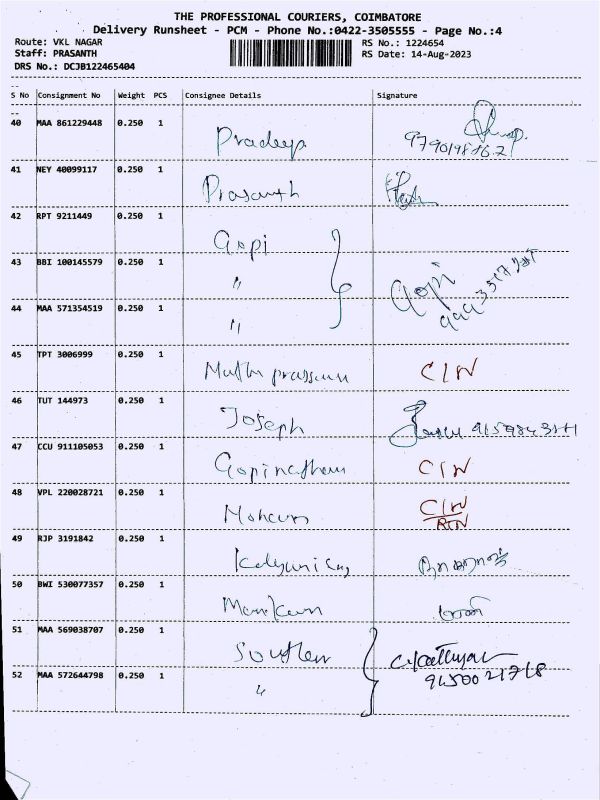 THE PROFESSIONAL COURIERS, COIMBATORE
Delivery Runsheet - PCM - Phone No.:0422-3505555 - Page No.:4
Route: VKL NAGAR RS No.: 1224654
Staff: PRASANTH RS Date: 14-Aug-2023
DRS No.: DCJB122465404
S No Consignment No Weight PCS Consignee Details Signature
40 MAA 861229448 0.250 1 Pradeep
41 NEY 40099117 0.250 1 Prasanth
42 RPT 9211449 0.250 1 Gopi
43 BBI 100145579 0.250 1 " Gopi
44 MAA 571354519 0.250 1 "
45 TPT 3006999 0.250 1 C/N
46 TUT 144973 0.250 1 Joseph
47 CCU 911105053 0.250 1 C/N
48 VPL 220028721 0.250 1 C/N
RTN
49 RJP 3191842 0.250 1
50 BWI 530077357 0.250 1
51 MAA 569038707 0.250 1
52 MAA 572644798 0.250 1 "